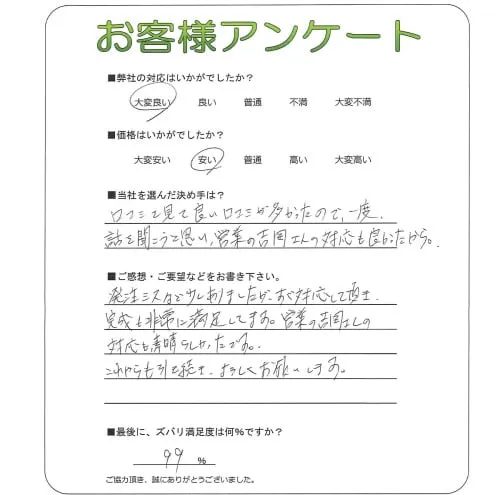 お客様アンケート
■弊社の対応はいかがでしたか？
大変良い 良い 普通 不満 大変不満
■価格はいかがでしたか？
大変安い 安い 普通 高い 大変高い
■当社を選んだ決め手は？
口コミで見て良い口コミが多かったので、一度、
話を聞こうと思い、営業の吉岡さんの対応も良かったから。
■ご感想・ご要望などをお書き下さい。
発注ミスなど少しありましたが、すぐ対応して頂き、
完成も非常に満足してます。営業の吉岡さんの
対応も素晴らしかったです。
これからも引き続き、よろしくお願いします。
■最後に、ズバリ満足度は何%ですか？
99 %
ご協力頂き、誠にありがとうございました。